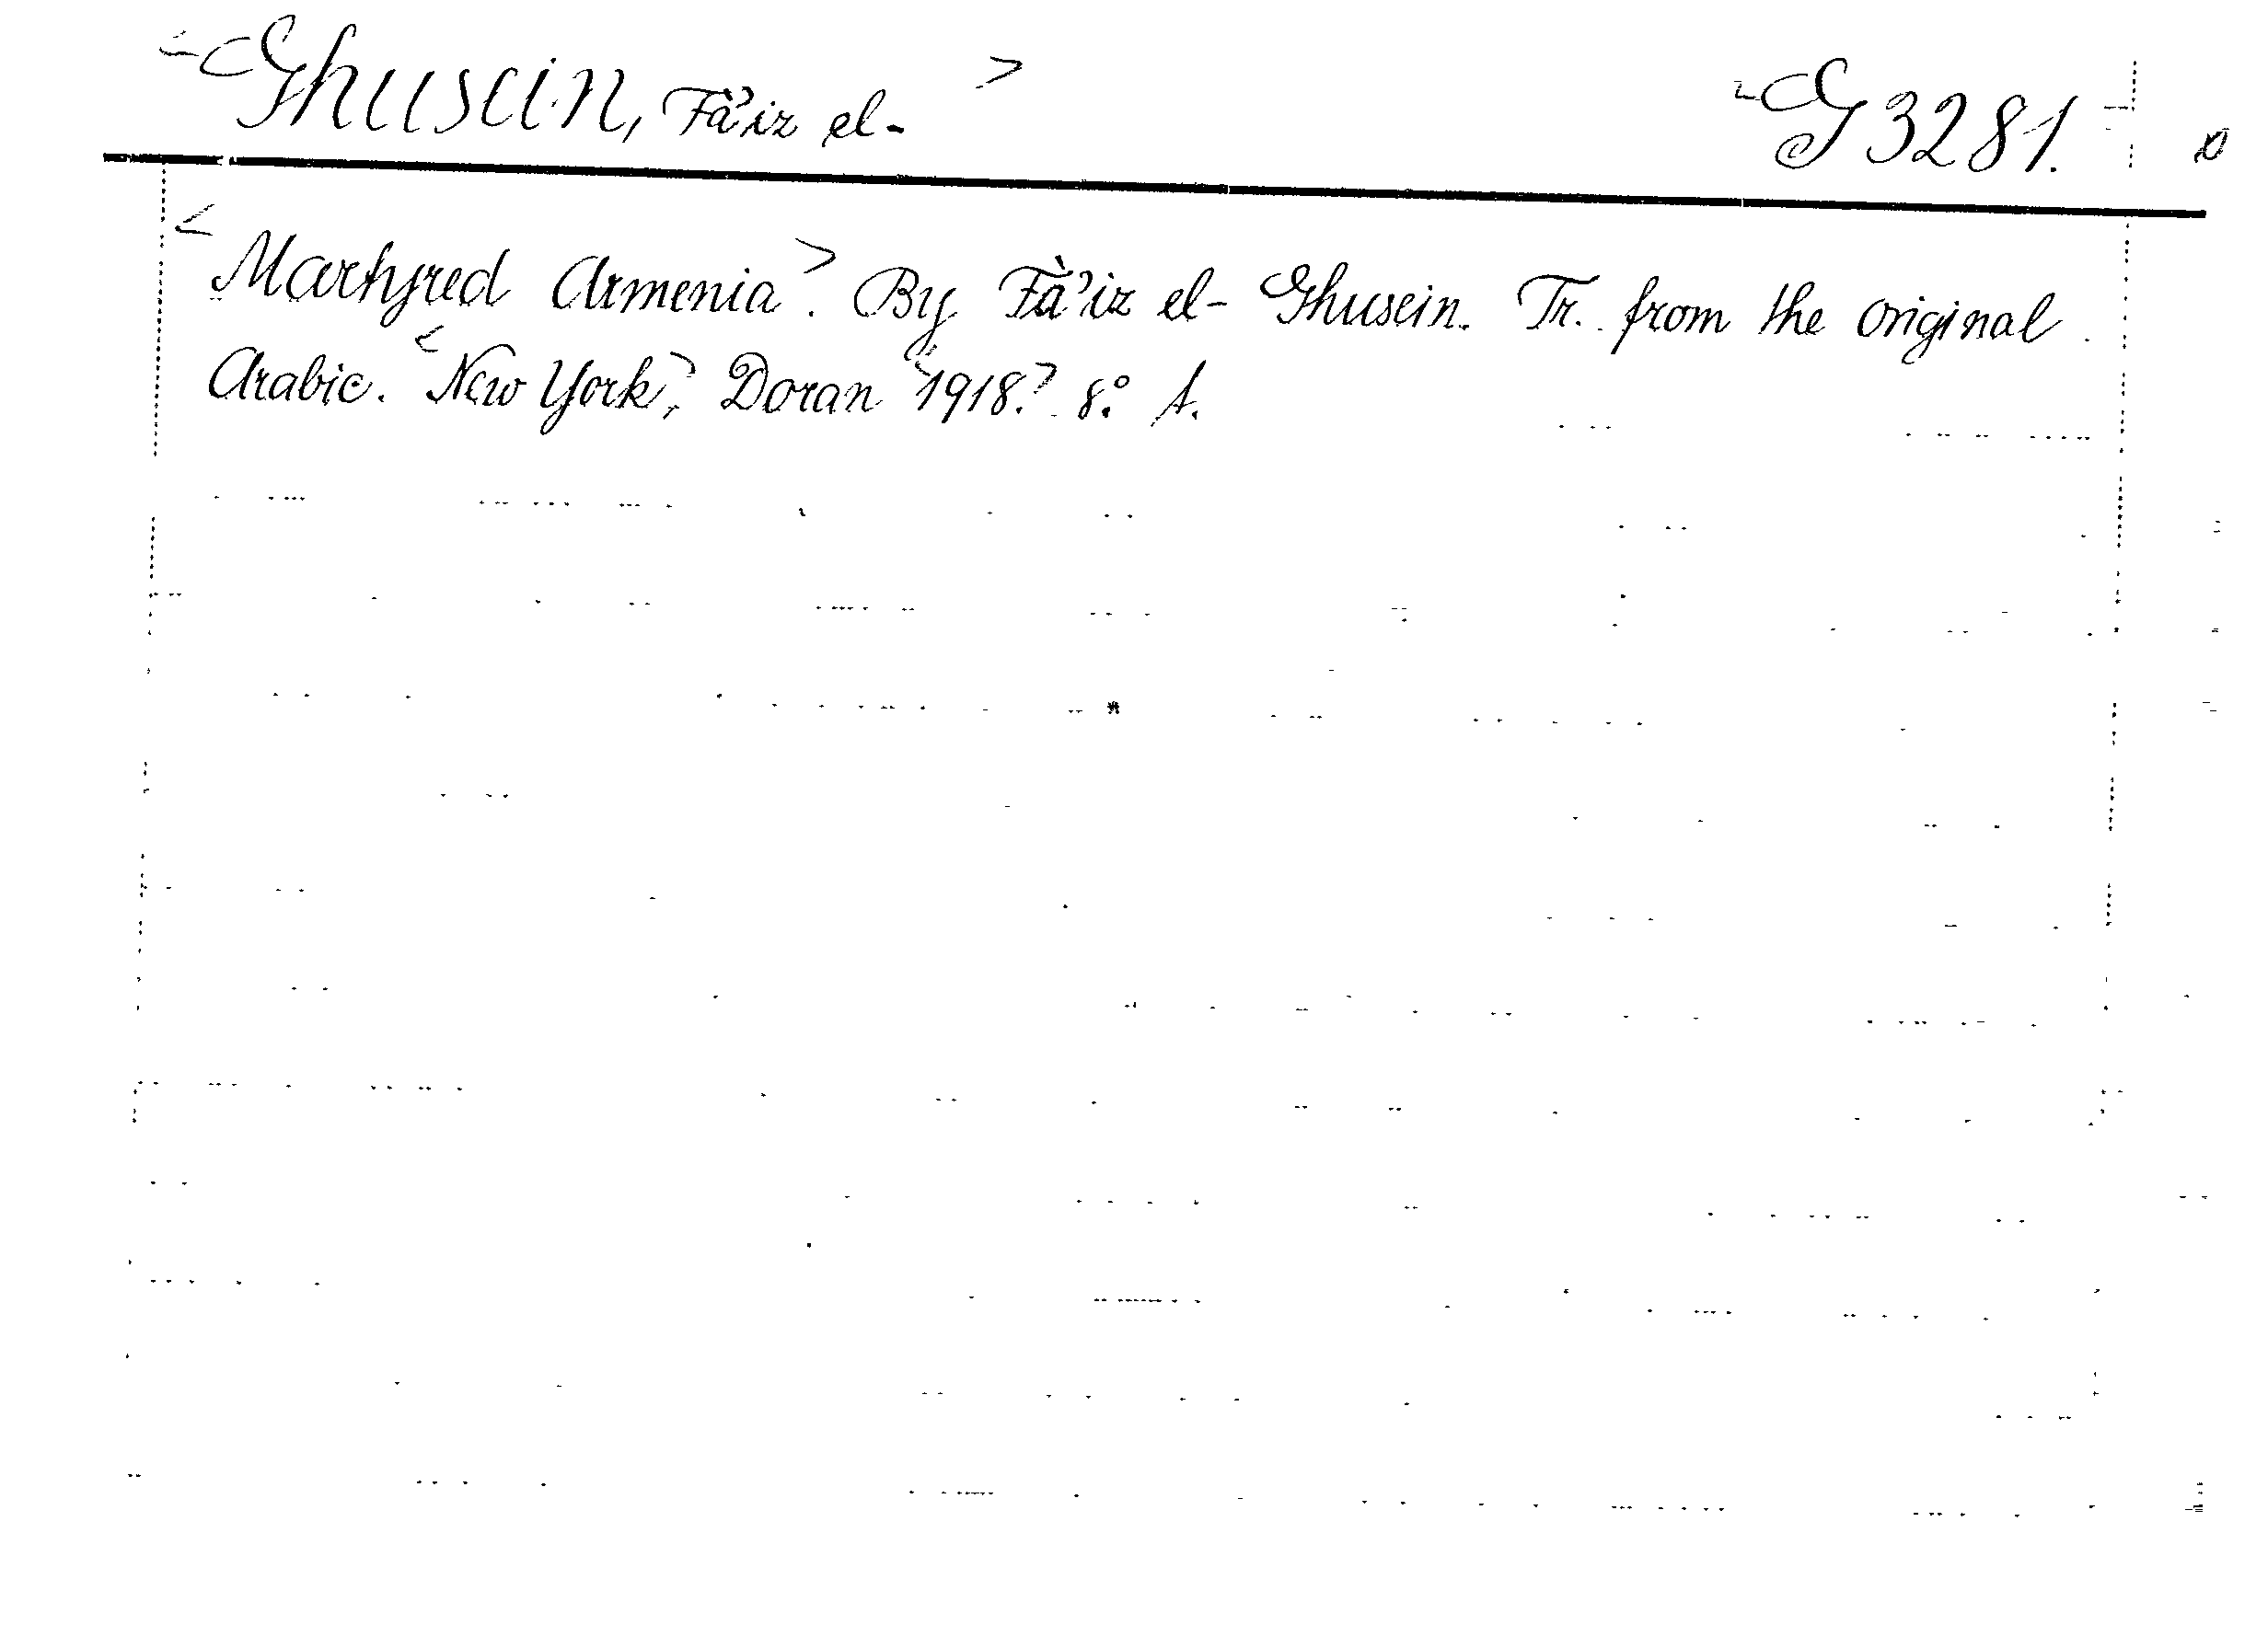 <Ghusein, Fà'iz el-> <G 3281.
<Martyred Armenia>. By Fà'iz el-Ghusein. Tr. from the original
Arabic. <New York>, Doran <1918.> 8.°